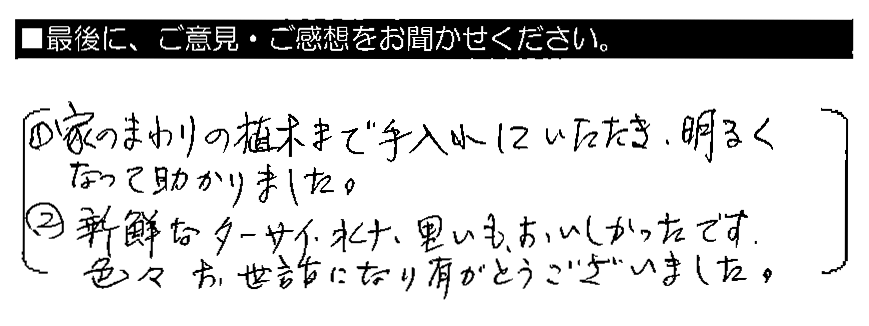 ■最後に、ご意見・ご感想をお聞かせください。
①家のまわりの植木まで手入れしていただき、明るく
なって助かりました。
②新鮮なターサイ、水ナ、里いも、おいしかったです。
色々お世話になり有がとうございました。